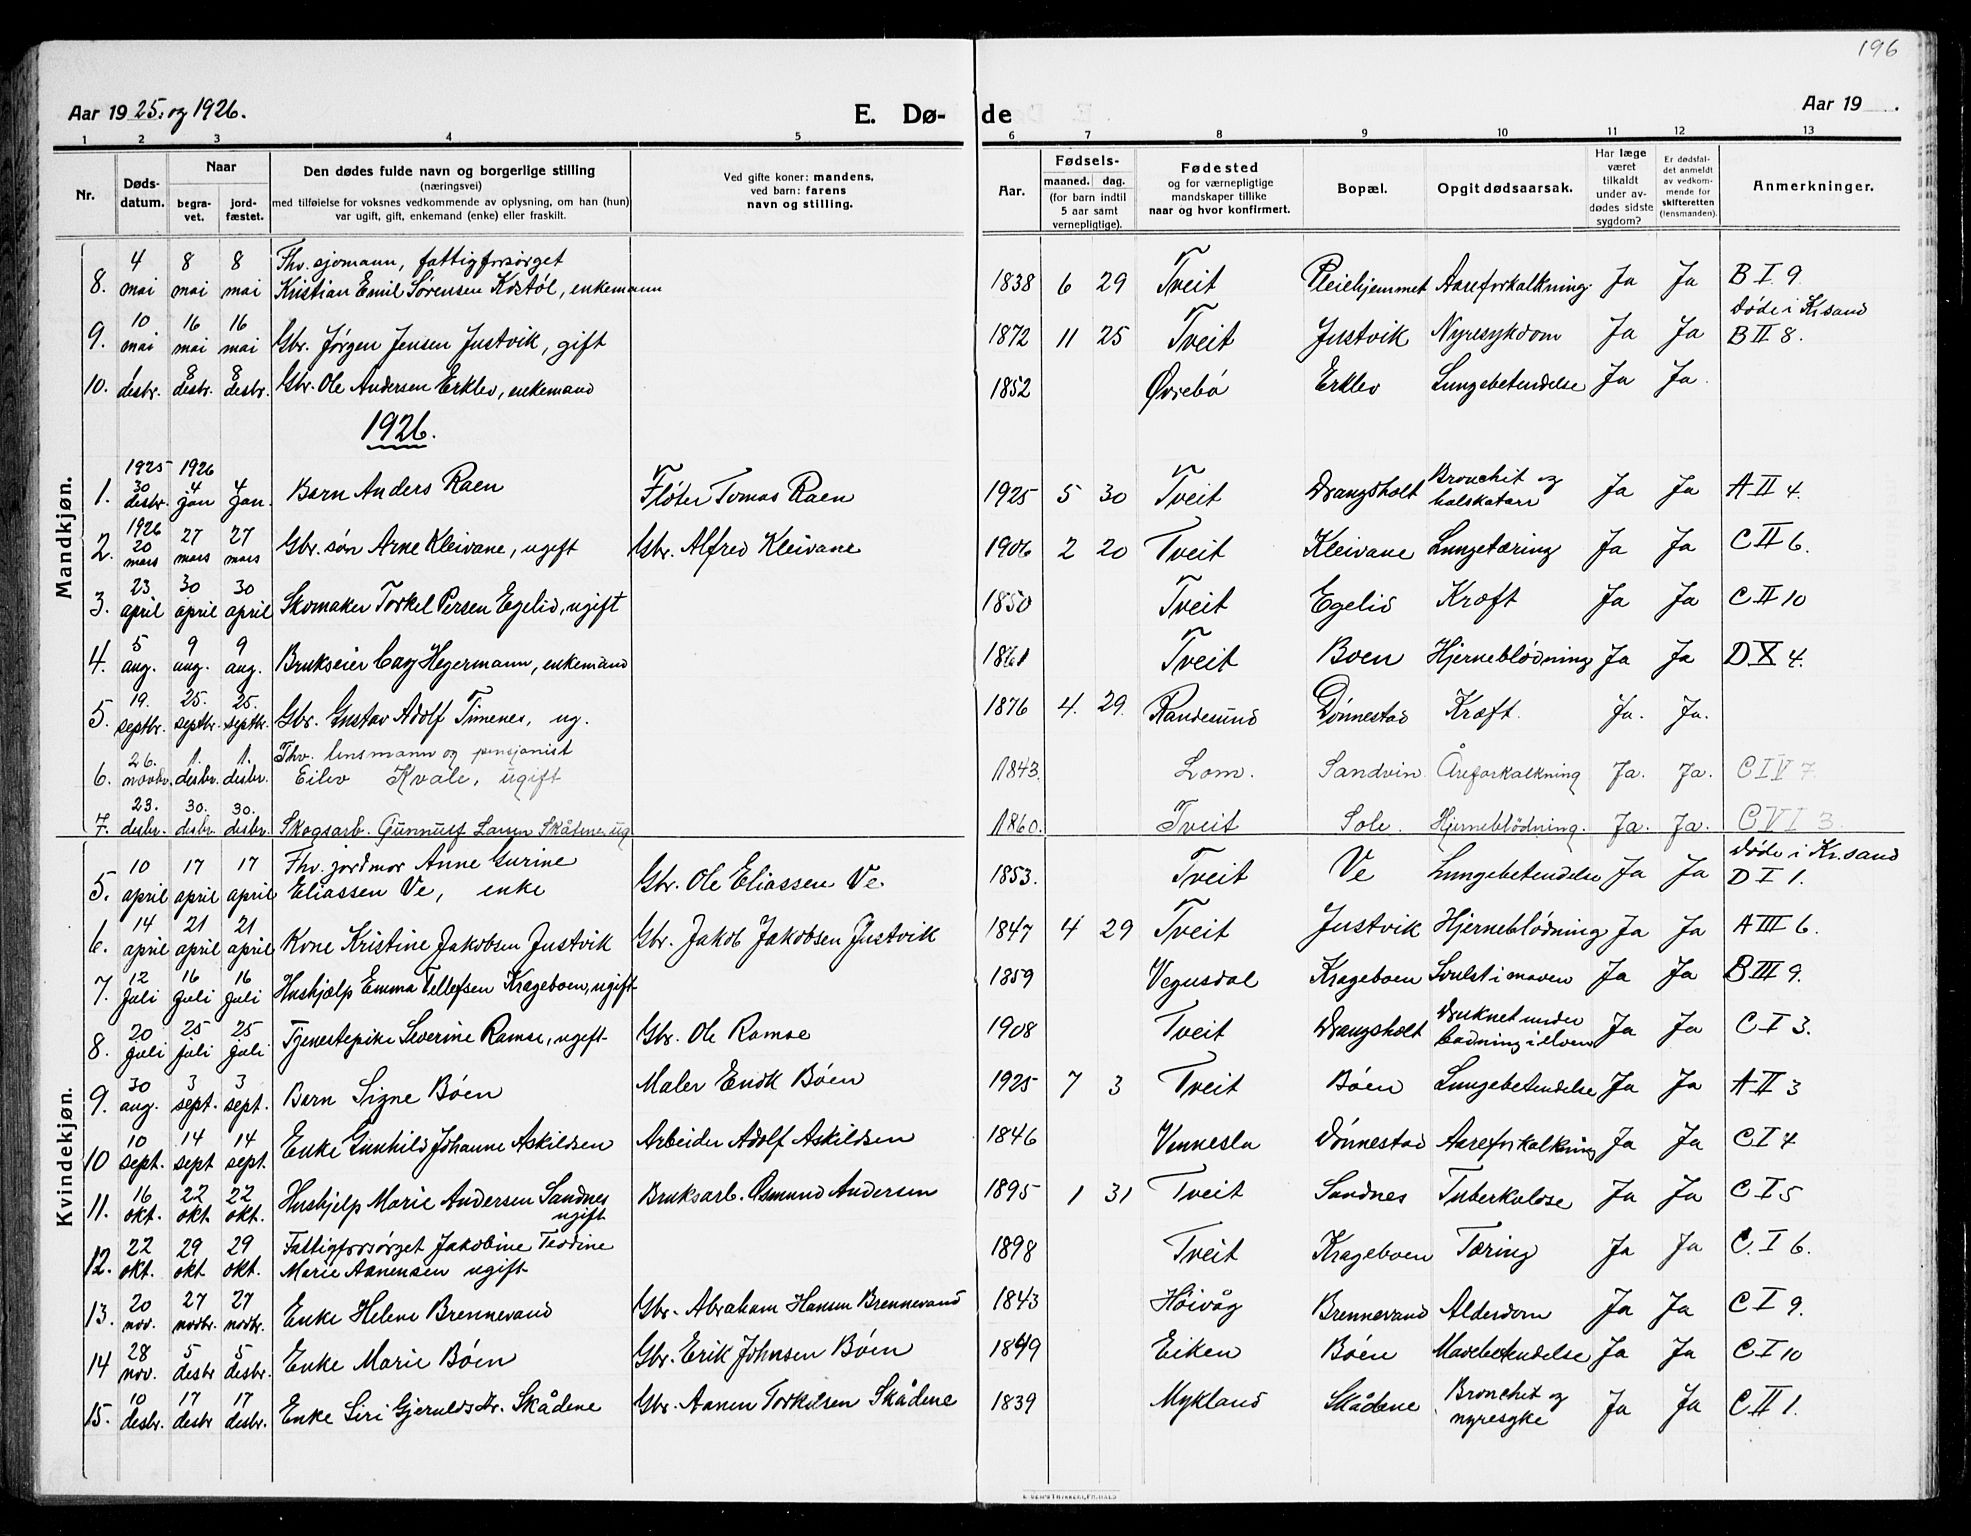 196
Aar 1925. og 1926.
E. Dø-
de
Aar 19 .
1 2 3 4 5 6 7 8 9 10 11 12 13
Nr.
Døds-
datum.
Naar
begra-
vet.
jord-
fæstet.
Den dødes fulde navn og borgerlige stilling
(næringsvei)
med tilføielse for voksnes vedkommende av oplysning, om han (hun)
var ugift, gift, enkemand (enke) eller fraskilt.
Ved gifte koner: mandens,
ved barn: farens
navn og stilling.
Fødsels-
Aar.
maaned. dag.
(for barn indtil
5 aar samt
vernepligtige).
Fødested
og for værnepligtige
mandskaper tillike
naar og hvor konfirmert.
Bopæl.
Opgit dødsaarsak.
Har læge
været
tilkaldt
under av-
dødes sidste
sygdom?
Er dødsfal-
det anmeldt
av vedkom-
mende for
skifteretten
(lensmanden).
Anmerkninger.
Mandkjøn.
4 8 8 Fhv. sjømann, fattigforsørget
8. mai mai mai Kristian Emil Sørensen Kostøl, enkemann 1838 6 29 Tveit Pleiehjemmet Aareforkalkning. Ja Ja B I 9.
10 16 16 døde i Kr.sand
9. mai mai mai Gbr. Jørgen Jensen Justvik, gift 1872 11 25 Tveit Justvik Nyresykdom Ja Ja B II 8.
1 8 8
10. desbr. desbr. desbr. Gbr. Ole Andersen Erklev, enkemand 1852 Øvrebø Erklev Lungebetendelse Ja Ja.
1926.
1925 1926
30 4 4 Bronchit og
1. desbr. jan jan. Barn Anders Raen Fløter Tomas Raen 1925 5 30 Tveit Drangsholt halskatarr Ja Ja A II 4.
1926
20 27 27
2. mars mars mars Gbr. søn Arne Kleivane, ugift Gbr. Alfred Kleivane 1906 2 20 Tveit Kleivane Lungetæring Ja Ja C II 6.
23 30 30
3. april april april Skomaker Torkel Persen Egelid, ugift 1850 Tveit Egelid Kræft Ja Ja C II 10
5 9 9
4. aug. aug. aug. Brukseier Cay Hegermann, enkemand 1861 Tveit Boen Hjerneblødning Ja Ja D X 4.
19. 25. 25.
5. septbr. septbr. septbr. Gbr. Gustav Adolf Timenes, ug. 1876 4. 29. Randesund Dønnestad Kræft. Ja. Ja.
26. 1. 1. Fhv. lensmann og pensjonist
6. novbr. desbr. desbr. Eilev Kvale, ugift 1843. Lom. Sandvin Åreforkalkning Ja. Ja. C IV 7.
23. 30. 30.
7. desbr. desbr. desbr. Skogsarb. Gunnulf Larsen Skådene, ug 1860. Tveit Sole. Hjerneblødning. Ja. Ja. C VI 3
Kvindekjøn.
10 17 17 Fhv. jordmor Anne Gurine døde i Kr.sand
5. april april april Eliassen Ve, enke Gbr. Ole Eliassen Ve 1853. Tveit Ve Lungebetendelse Ja Ja D I 1.
14 21 21
6. april april april Kone Kristine Jakobsen Justvik Gbr. Jakob Jakobsen Justvik 1847 4 29 Tveit Justvik Hjerneblødning Ja Ja A III 6.
12 16 16
7. Juli Juli Juli Hushjælp Emma Tellefsen Krageboen, ugift 1859 Vegusdal Krageboen Svulst i maven Ja Ja B III 9.
20 25 25 Druknet under
8. Juli Juli Juli Tjenestepike Severine Ramse, ugift Gbr. Ole Ramse 1908 Tveit Drangsholt badning i elven Ja Ja C I 3.
30 3 3
9. aug. sept. sept. Barn Signe Böen Maler Endk Böen 1925 7 3 Tveit Böen Lungebetendelse Ja Ja A II 3
10 14 14
10 sept. sept sept. Enke Gunhild Johanne Askildsen Arbeider Adolf Askildsen 1846 Vennesla Dønnestad Aareforkalkning Ja Ja C I 4
16 22 22
11. okt. okt okt. Hushjelp Marie Andersen Sandnes Bruksarb. Osmund Andersen 1895 1 31 Tveit Sandnes Tuberkulose Ja Ja C I 5
ugift
22 29 29 Fattigforsørget Jakobine Teodine
12. okt. okt okt. Marie Aanensen ugift 1898 Tveit Krageboen Tæring Ja Ja C. I 6.
20 27 27
13. nov. novbr. novbr. Enke Helene Brennevand Gbr. Abraham Hansen Brennevand 1843 Höivåg Brennevand Alderdom Ja Ja C I 9.
28 5 5
14 nov. desbr desbr. Enke Marie Böen Gbr. Erik Johnsen Böen 1849 Eiken Böen Mavebetendelse Ja Ja C I 10
10 17 17 Bronchit og
15. desbr. desbr desbr. Enke Siri Gjeruldsdr. Skådene Gbr. Aanen Torkelsen Skådene 1839 Mykland Skådene nyresyke Ja Ja C II 1.